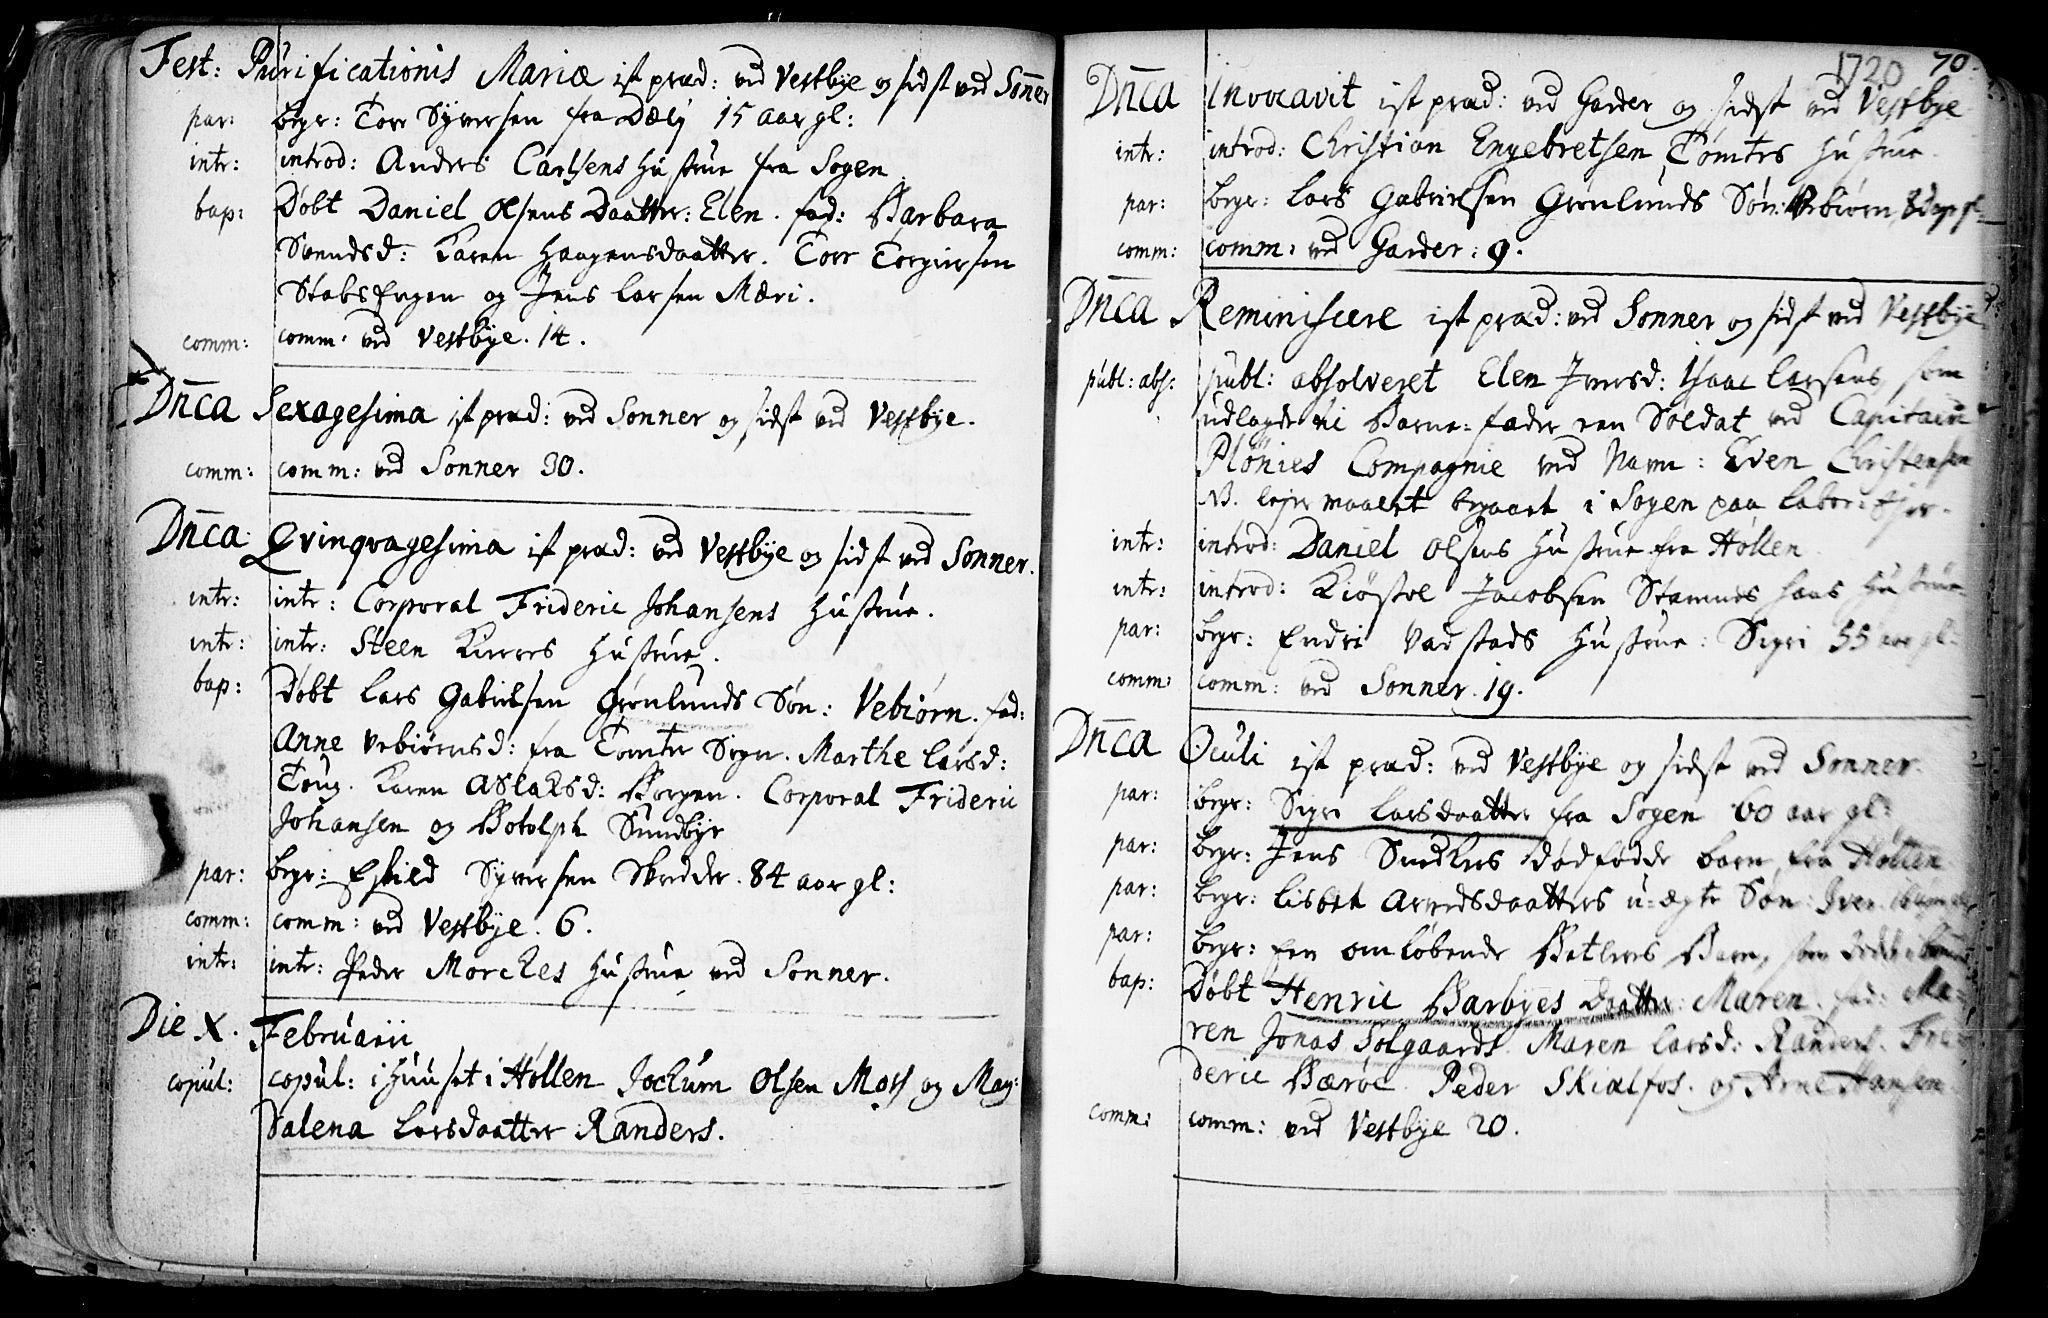 Fest: Purificationis Mariæ ist præd: ved Vestbye og sidst ved Sonner
par: begr: Tore Syversen fra Dæli 15 aar gl:
intr: introd: Anders Carlsens Hustrue fra Sogen
bap: Døbt Daniel Olsens Daatter: Elen. fad: Barbara
Svendsd: Karen Haagensdaatter. Tore Torgiersen
Stabsengen og Jens Larsen Mæri.
comm: comm: ved Vestbye. 14.
Dn̄ca Sexagesima ist præd: ved Sonner og sidst ved Vestbye.
comm: comm: ved Sonner 30.
Dn̄ca: Qvinqvagesima ist præd: ved Vestbye og sidst ved Sonner.
intr: intr: Corporal Frideric Johansens Hustrue.
intr: intr: Steen Hustrue.
bap: Døbt Lars Gabrielsen Grønlunds Søn: Vebiørn. fad:
Anne Vebiørnsd: fra Tomter Sogn. Marthe Larsd:
Toug. Karen Aslaksd: Borgen. Corporal Frideric
Johansen og Botolph Sundbye
par: begr: Eskild Syversen Skredder. 84 aar gl:
comm: comm: ved Vestbye. 6.
intr: intr: Peder Morckes Hustrue ved Sonner.
Die X. Februarii
copul: copul: i Huuset i Høllen Jockum Olsen Moss og Mag-
dalena Larsdaatter Randers.
1720 70.
Dn̄ca Invocavit ist præd: ved Garder og sidst ved Vestbye
intr: introd: Christian Engebretsen Tomters Hustrue.
par: begr: Lars Gabrielsen Grønlunds Søn: Vebiørn 8
comm: comm: ved Garder: 9.
Dn̄ca Reminiscere ist præd: ved Sonner og sidst ved Vestbye
publ: abs: publ: absolveret Elen Iversd: Isaac Larsens, som
udlagde til Barne-fader een Soldat ved Capitain
Plönies Compagnie ved Navn: Even Christensen
NB. lejermaalet begaaet i Sogen paa
intr: introd: Daniel Olsens Hustrue fra Høllen
intr: introd: Kiøstol Jacobsen Stamnes hans Hustrue
par: begr: Endre Vadstads Hustrue: Sigri 55 aar gl:
comm: comm: ved Sonner. 19.
Dn̄ca Oculi ist præd: ved Vestbye og sidst ved Sonner.
par: begr: Sigri Larsdaatter fra Sogen 60 aar gl:
par: begr: Jens Snedkers dødfødde barn fra Høllen
par: begr: Lisbet Arvedsdaatters u-ægte Søn: Iver.
par: begr: Een omløbende Betlers Barn, som
bap: Døbt Henric Barbyes Daatter: Maren. fad: Ma-
ren Jonas Solgaards. Maren Larsd: Randers. Fri-
deric Bærøe. Peder Skialfos. og Arne Hansen
comm: comm: ved Vestbye 20.